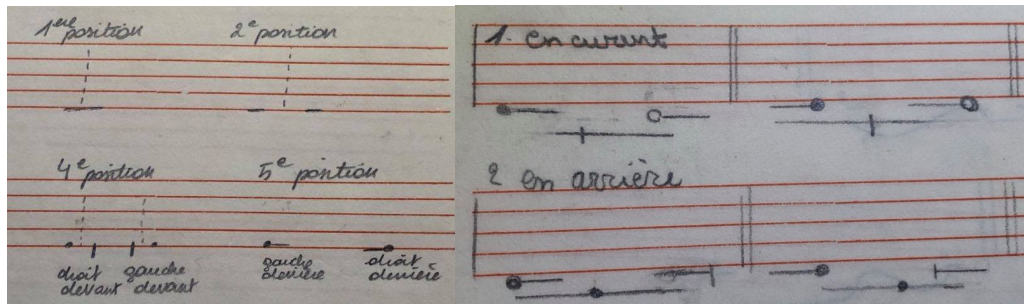 1ère position 2e position
4e position 5e position
droit devant gauche devant gauche derrière droit derrière
1. en avant
2 en arrière